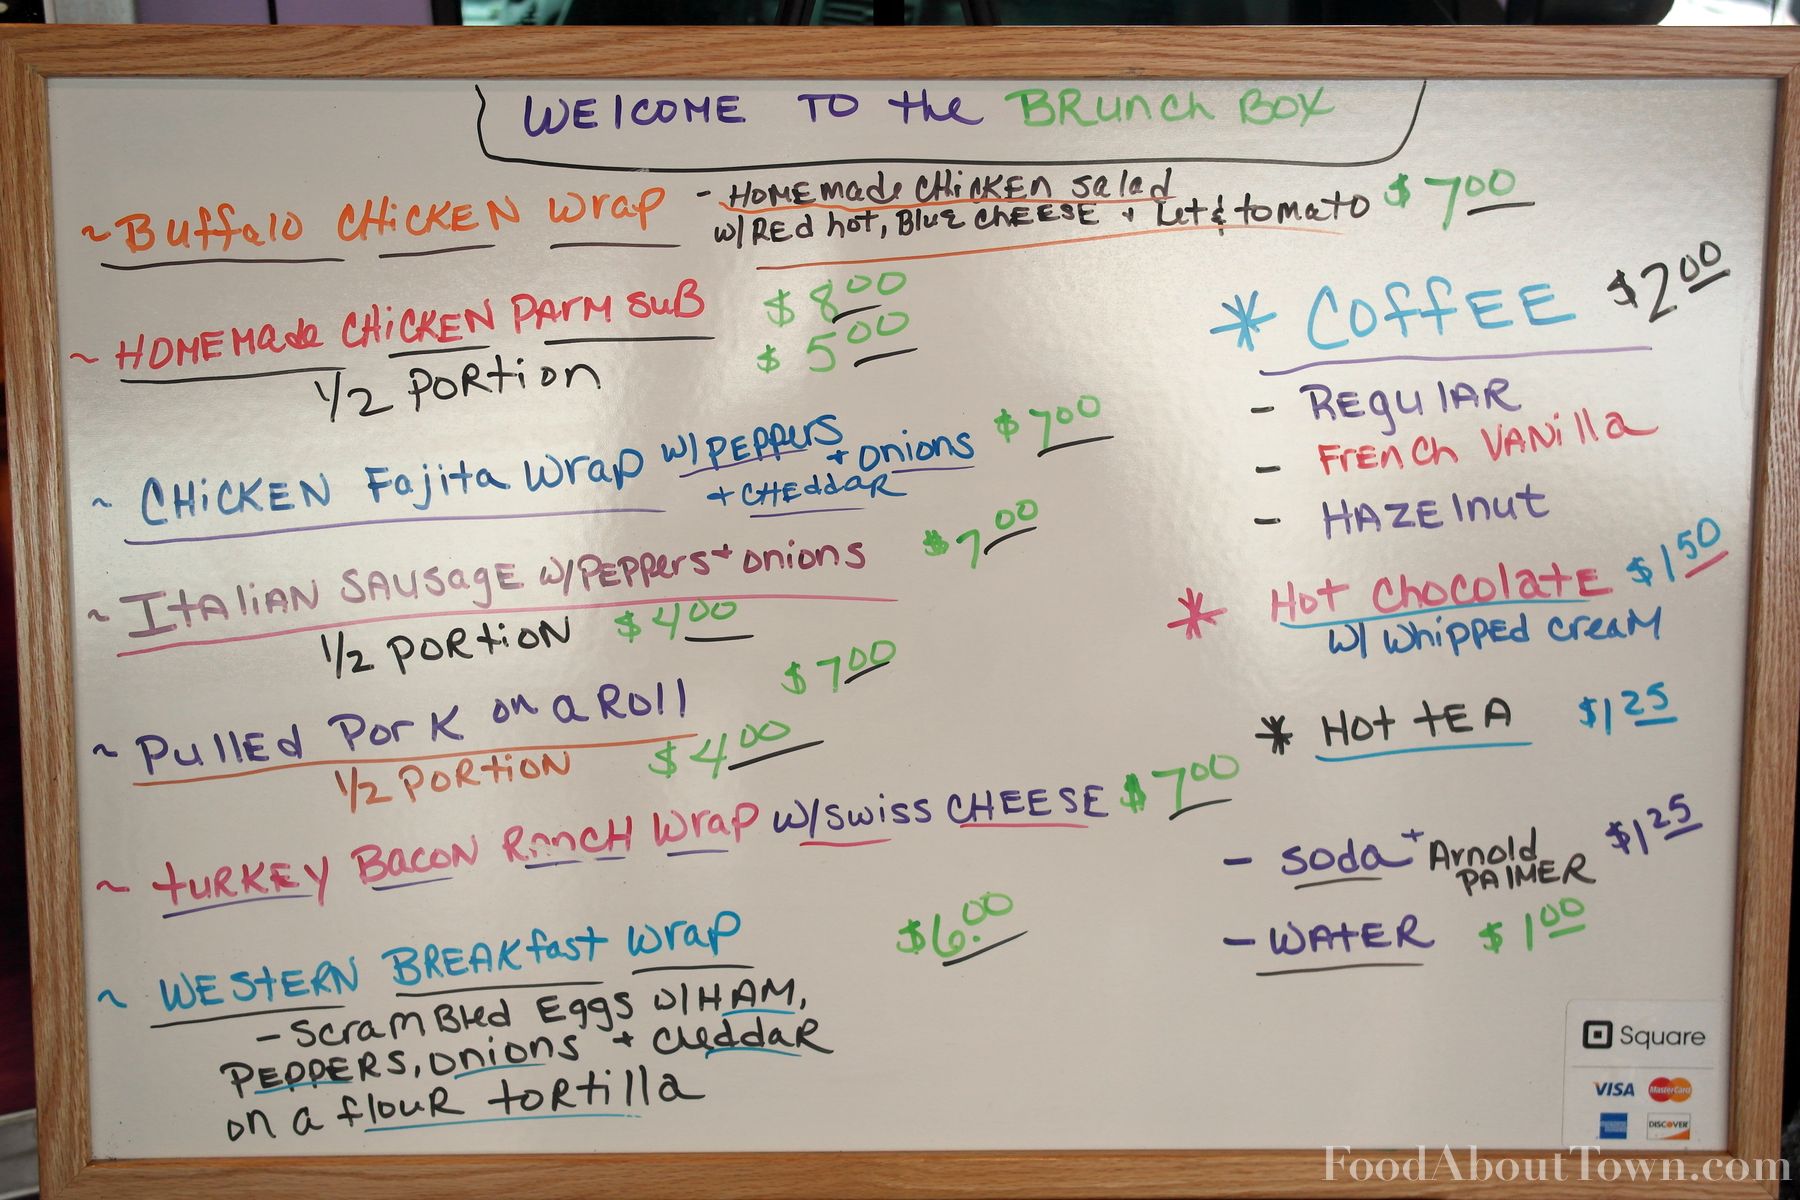 WELCOME TO the BRunch BOX
~ Buffalo CHiCKEN Wrap - HOMEmade CHiCKEN salad $7.00
w/ REd hot, BLUE CHEESE + Let & tomato
~ HOMEMade CHiCKEN PArM SuB $8.00
1/2 PORtion $5.00
~ CHiCKEN Fajita Wrap w/ PEPPErS + Onions $7.00
+ CHEddAR
~ ItAliAN SAUSAgE w/ PEPPErs + onions $7.00
1/2 PORtiON $4.00
~ PullEd PorK on a Roll $7.00
1/2 PORtiON $4.00
~ tuRKEy BacoN RanCH Wrap w/ swiss CHEESE $7.00
~ WEStERN BREAKfast Wrap $6.00
- ScraMBlEd Eggs w/ HAM,
PEPPERS, onions + CheddaR
on a flouR toRtilla
* CoffEE $2.00
- REguLAR
- FrENCh VANilla
- HAZElnut
* Hot Chocolate $1.50
w/ Whipped CreaM
* Hot tEA $1.25
- Soda + Arnold PAlMER $1.25
- WAtER $1.00
Square
VISA MasterCard
DISCOVER
FoodAboutTown.com